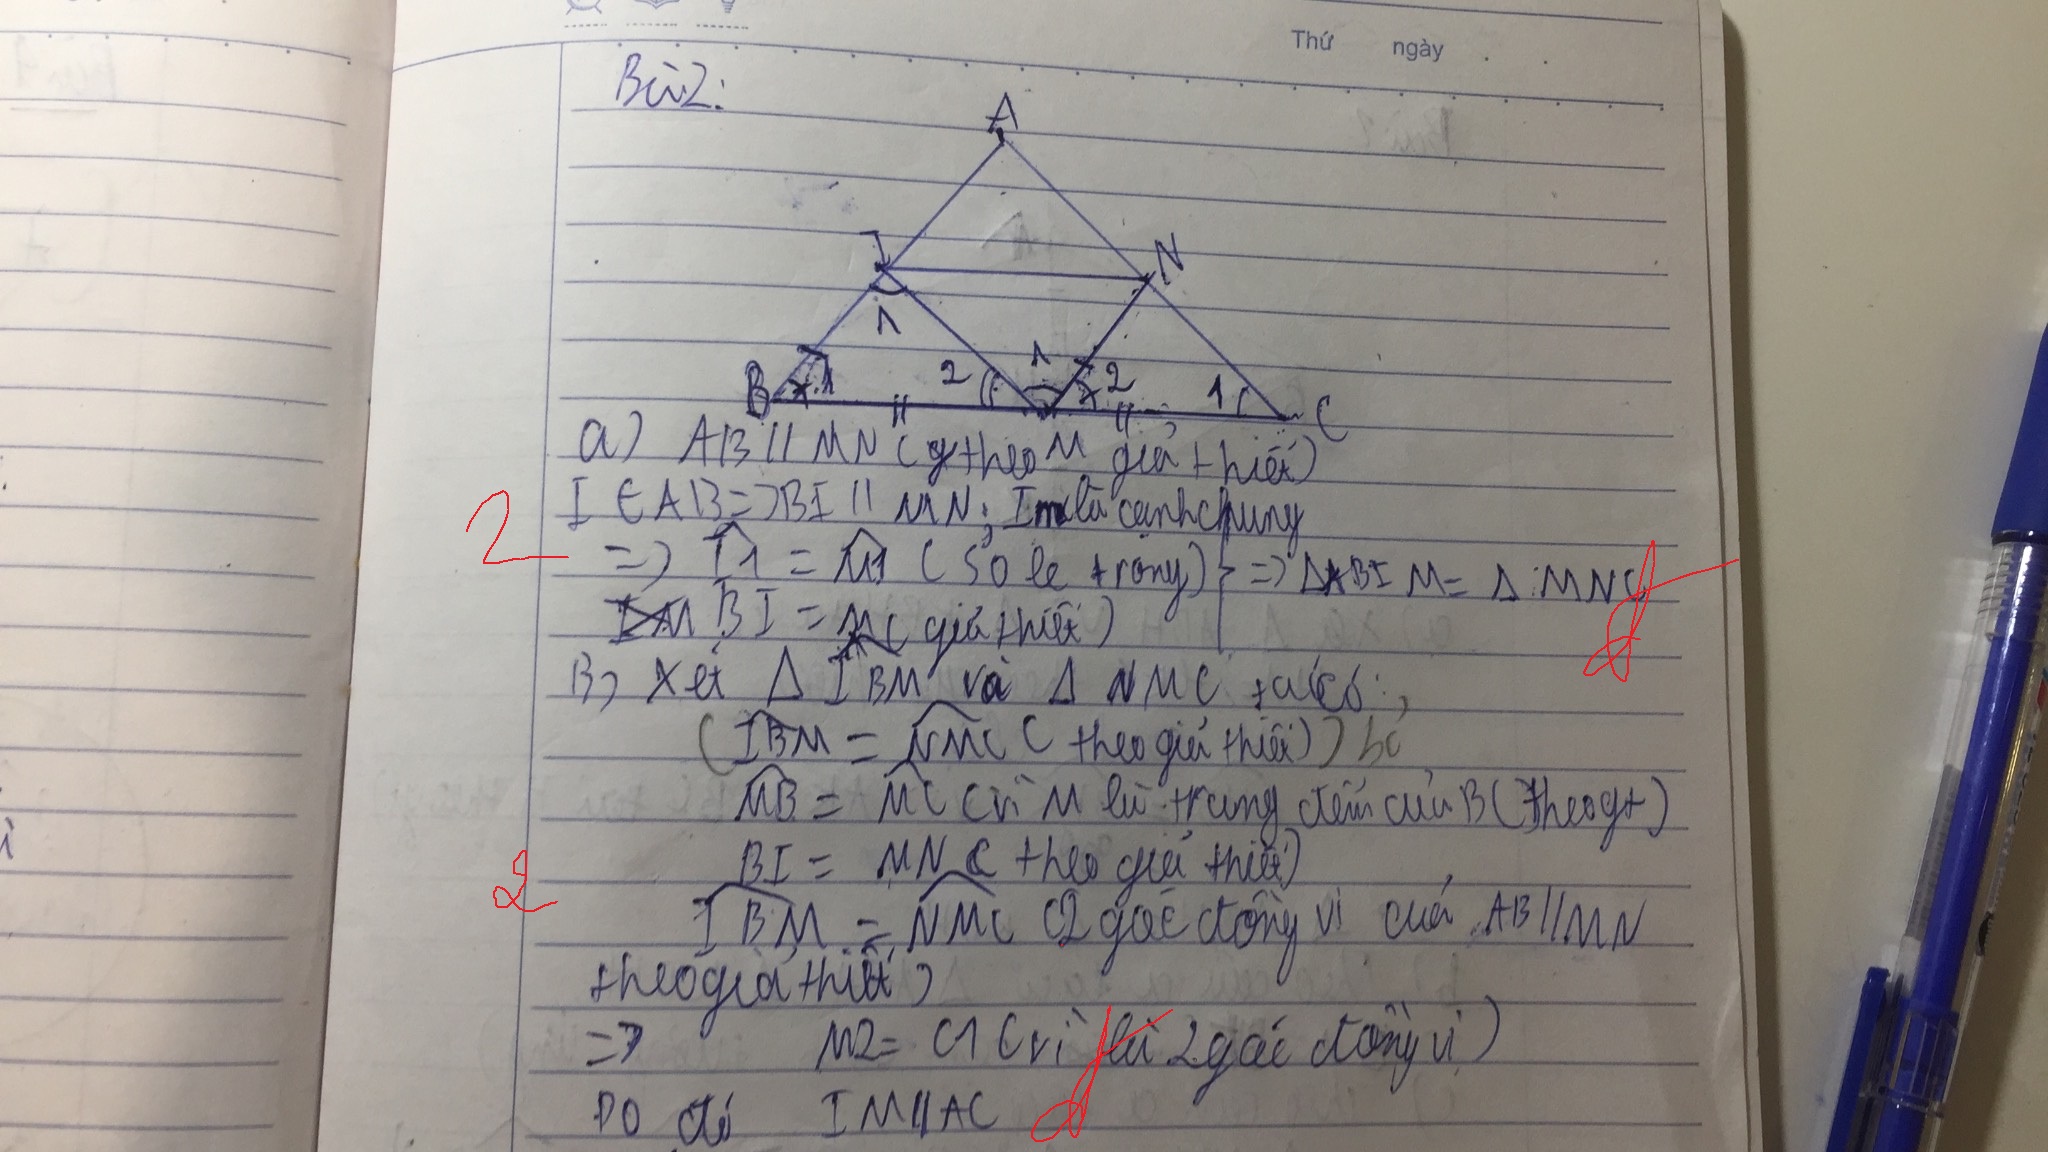 Thứ ngày
Bài 2:
A
I N
1
B 1 2 1 2 1 C
a) AB // MN ( theo M giả thiết)
2 I ∈ AB => BI // MN; IM là cạnh chung
=> I1 = M1 ( so le trong) } => Δ BIM = Δ MNC
BI = MC giả thiết)
B) Xét Δ IBM và Δ NMC ta có:
(IBM = NMC ( theo giả thiết)) bỏ
MB = MC ( vì M là trung điểm của B( theo gt)
BI = MN ( theo giả thiết)
2 IBM = NMC (2 góc đồng vị của AB // MN
theo giả thiết)
=> M2 = C1 ( vì là 2 góc đồng vị )
DO đó IM // AC